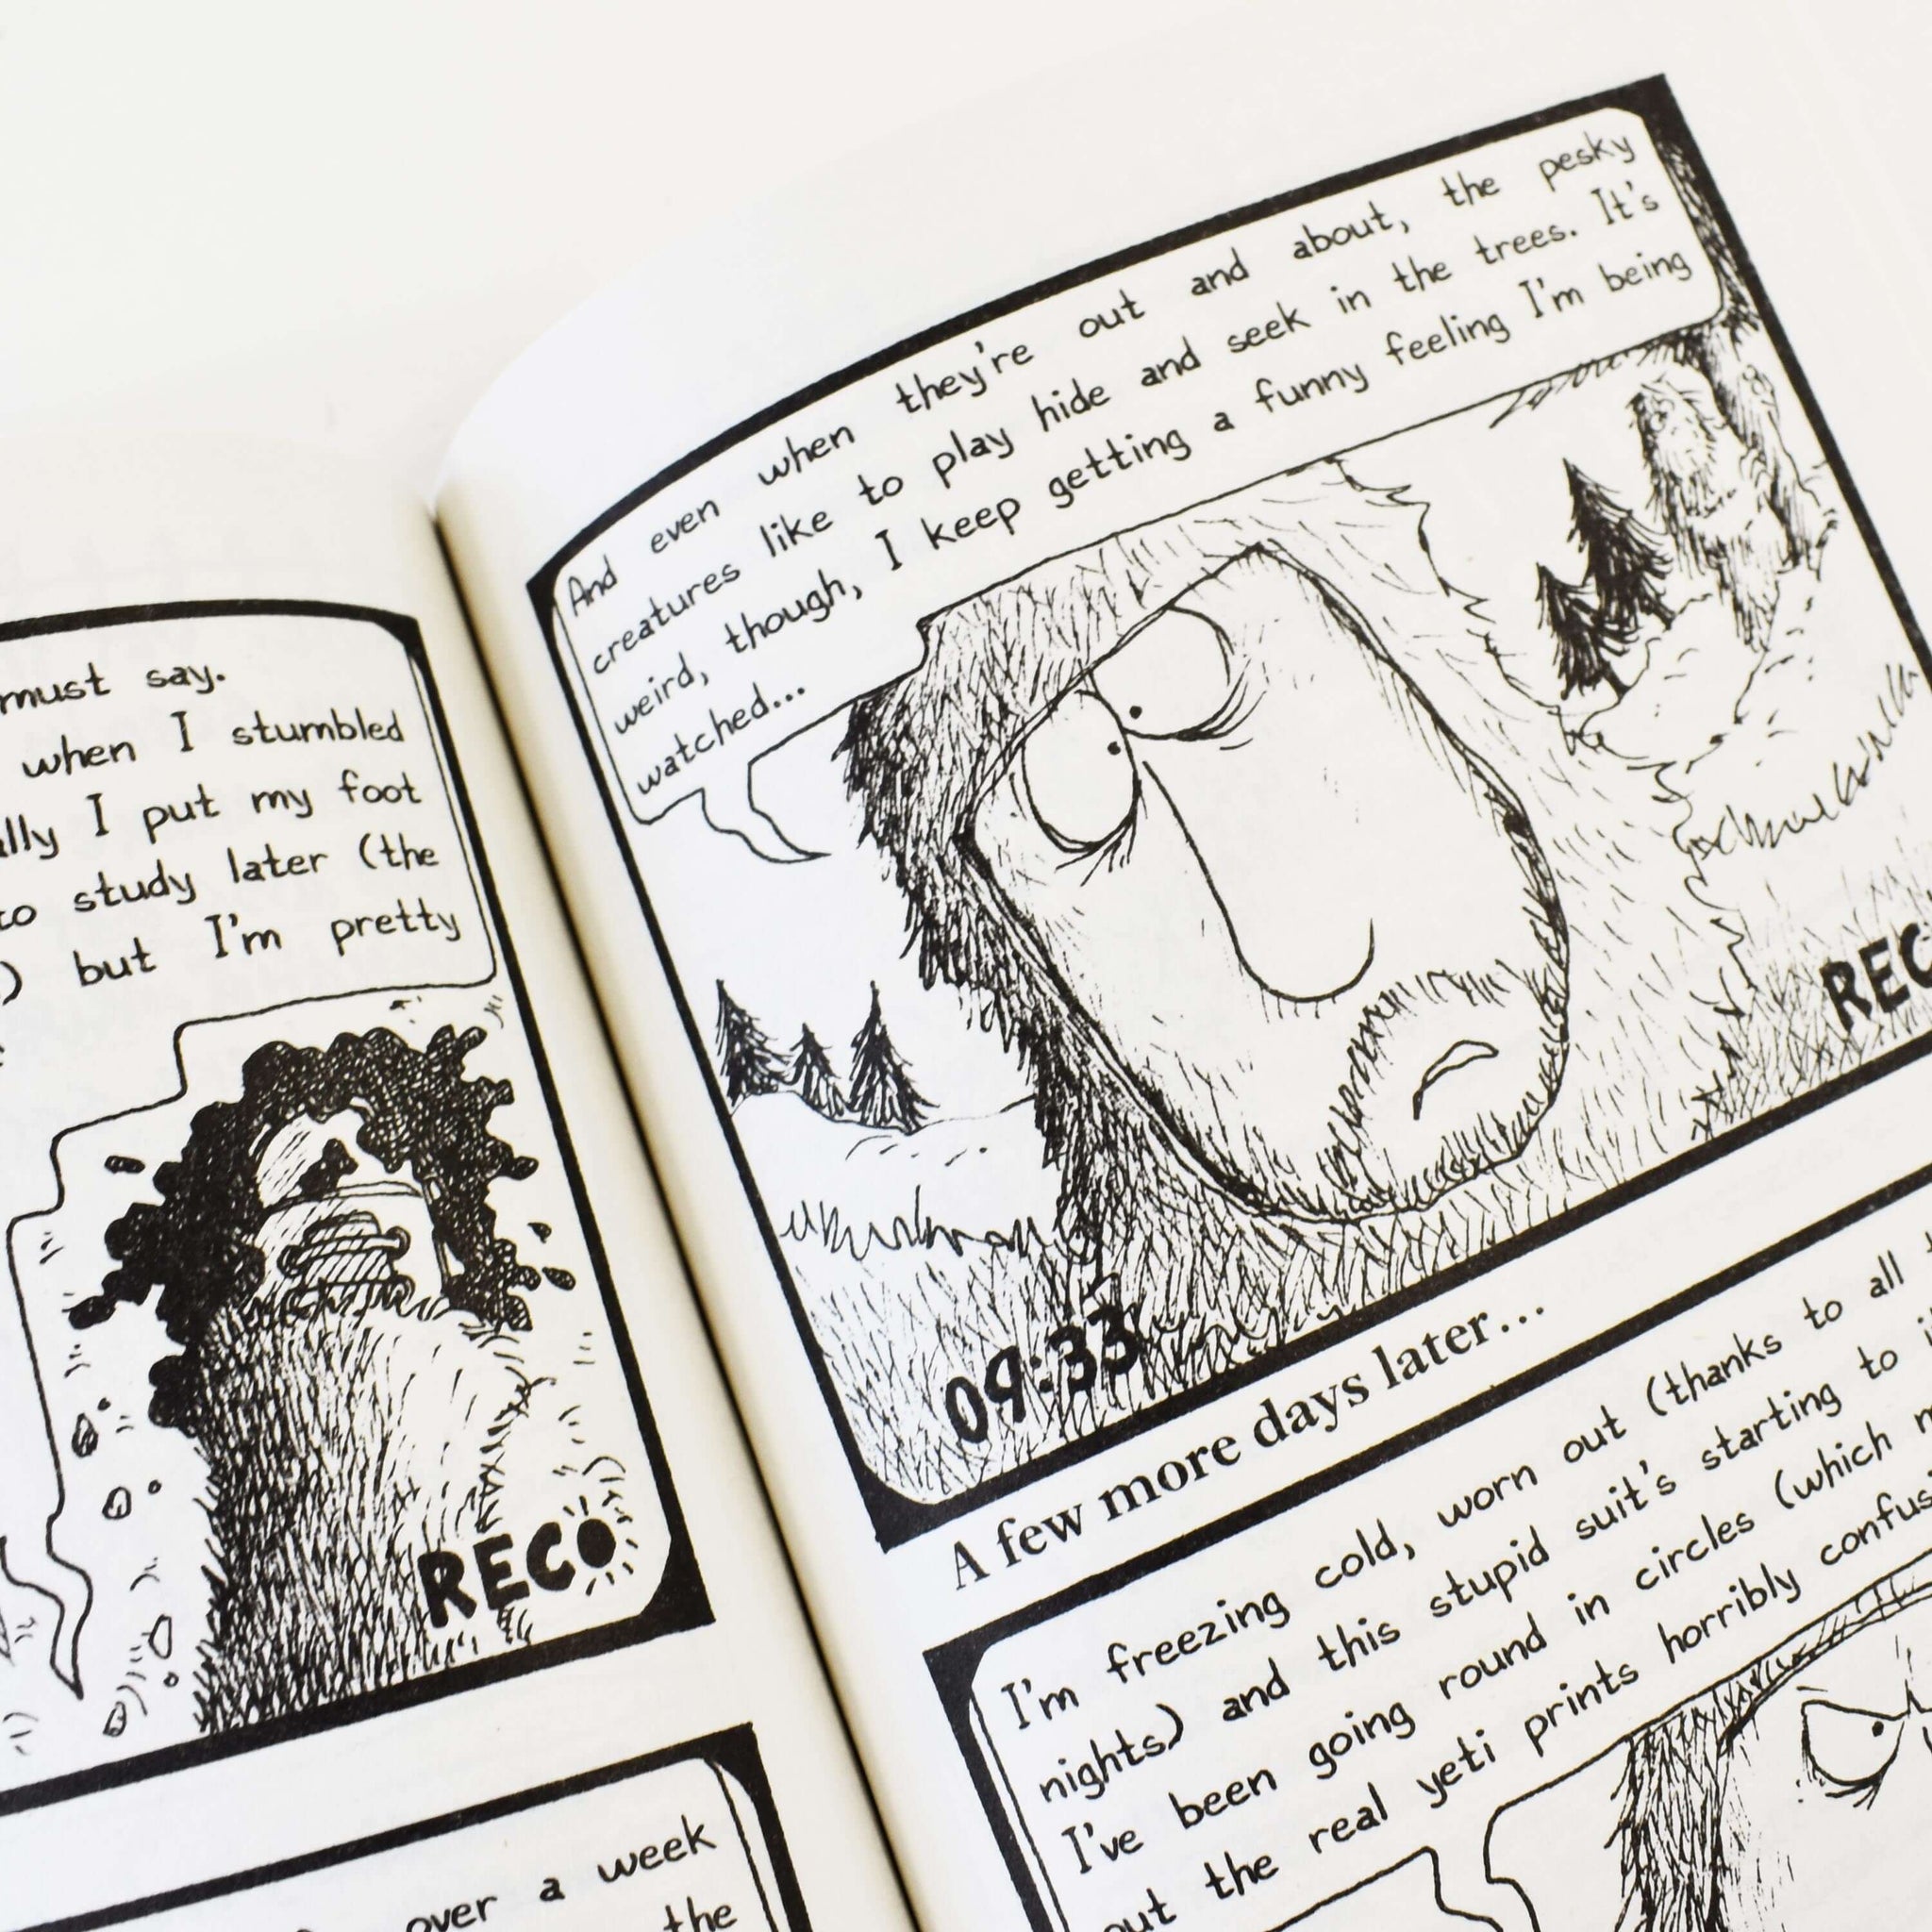 must say.
when I stumbled
I put my foot
to study later (the
) but I'm pretty
REC
over a week
the
And even when they're out and about, the pesky
creatures like to play hide and seek in the trees. It's
weird, though, I keep getting a funny feeling I'm being
watched...
REC
09:33
A few more days later...
I'm freezing cold, worn out (thanks to all
nights) and this stupid suit's starting to
I've been going round in circles (which
out the real yeti prints horribly